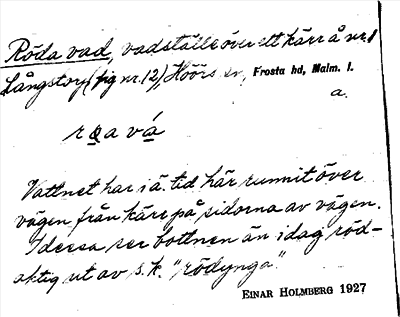 Röda vad, vadställe över ett kärr å nr 1
Långstorp (fig nr 12), Höörs sn, Frosta hd, Malm. l.
a.
rǫa vá
Vattnet har i ä. tid här runnit över
vägen från kärr på sidorna av vägen.
I dessa ser bottnen än idag röd-
aktig ut av s.k. "rödynga".
EINAR HOLMBERG 1927